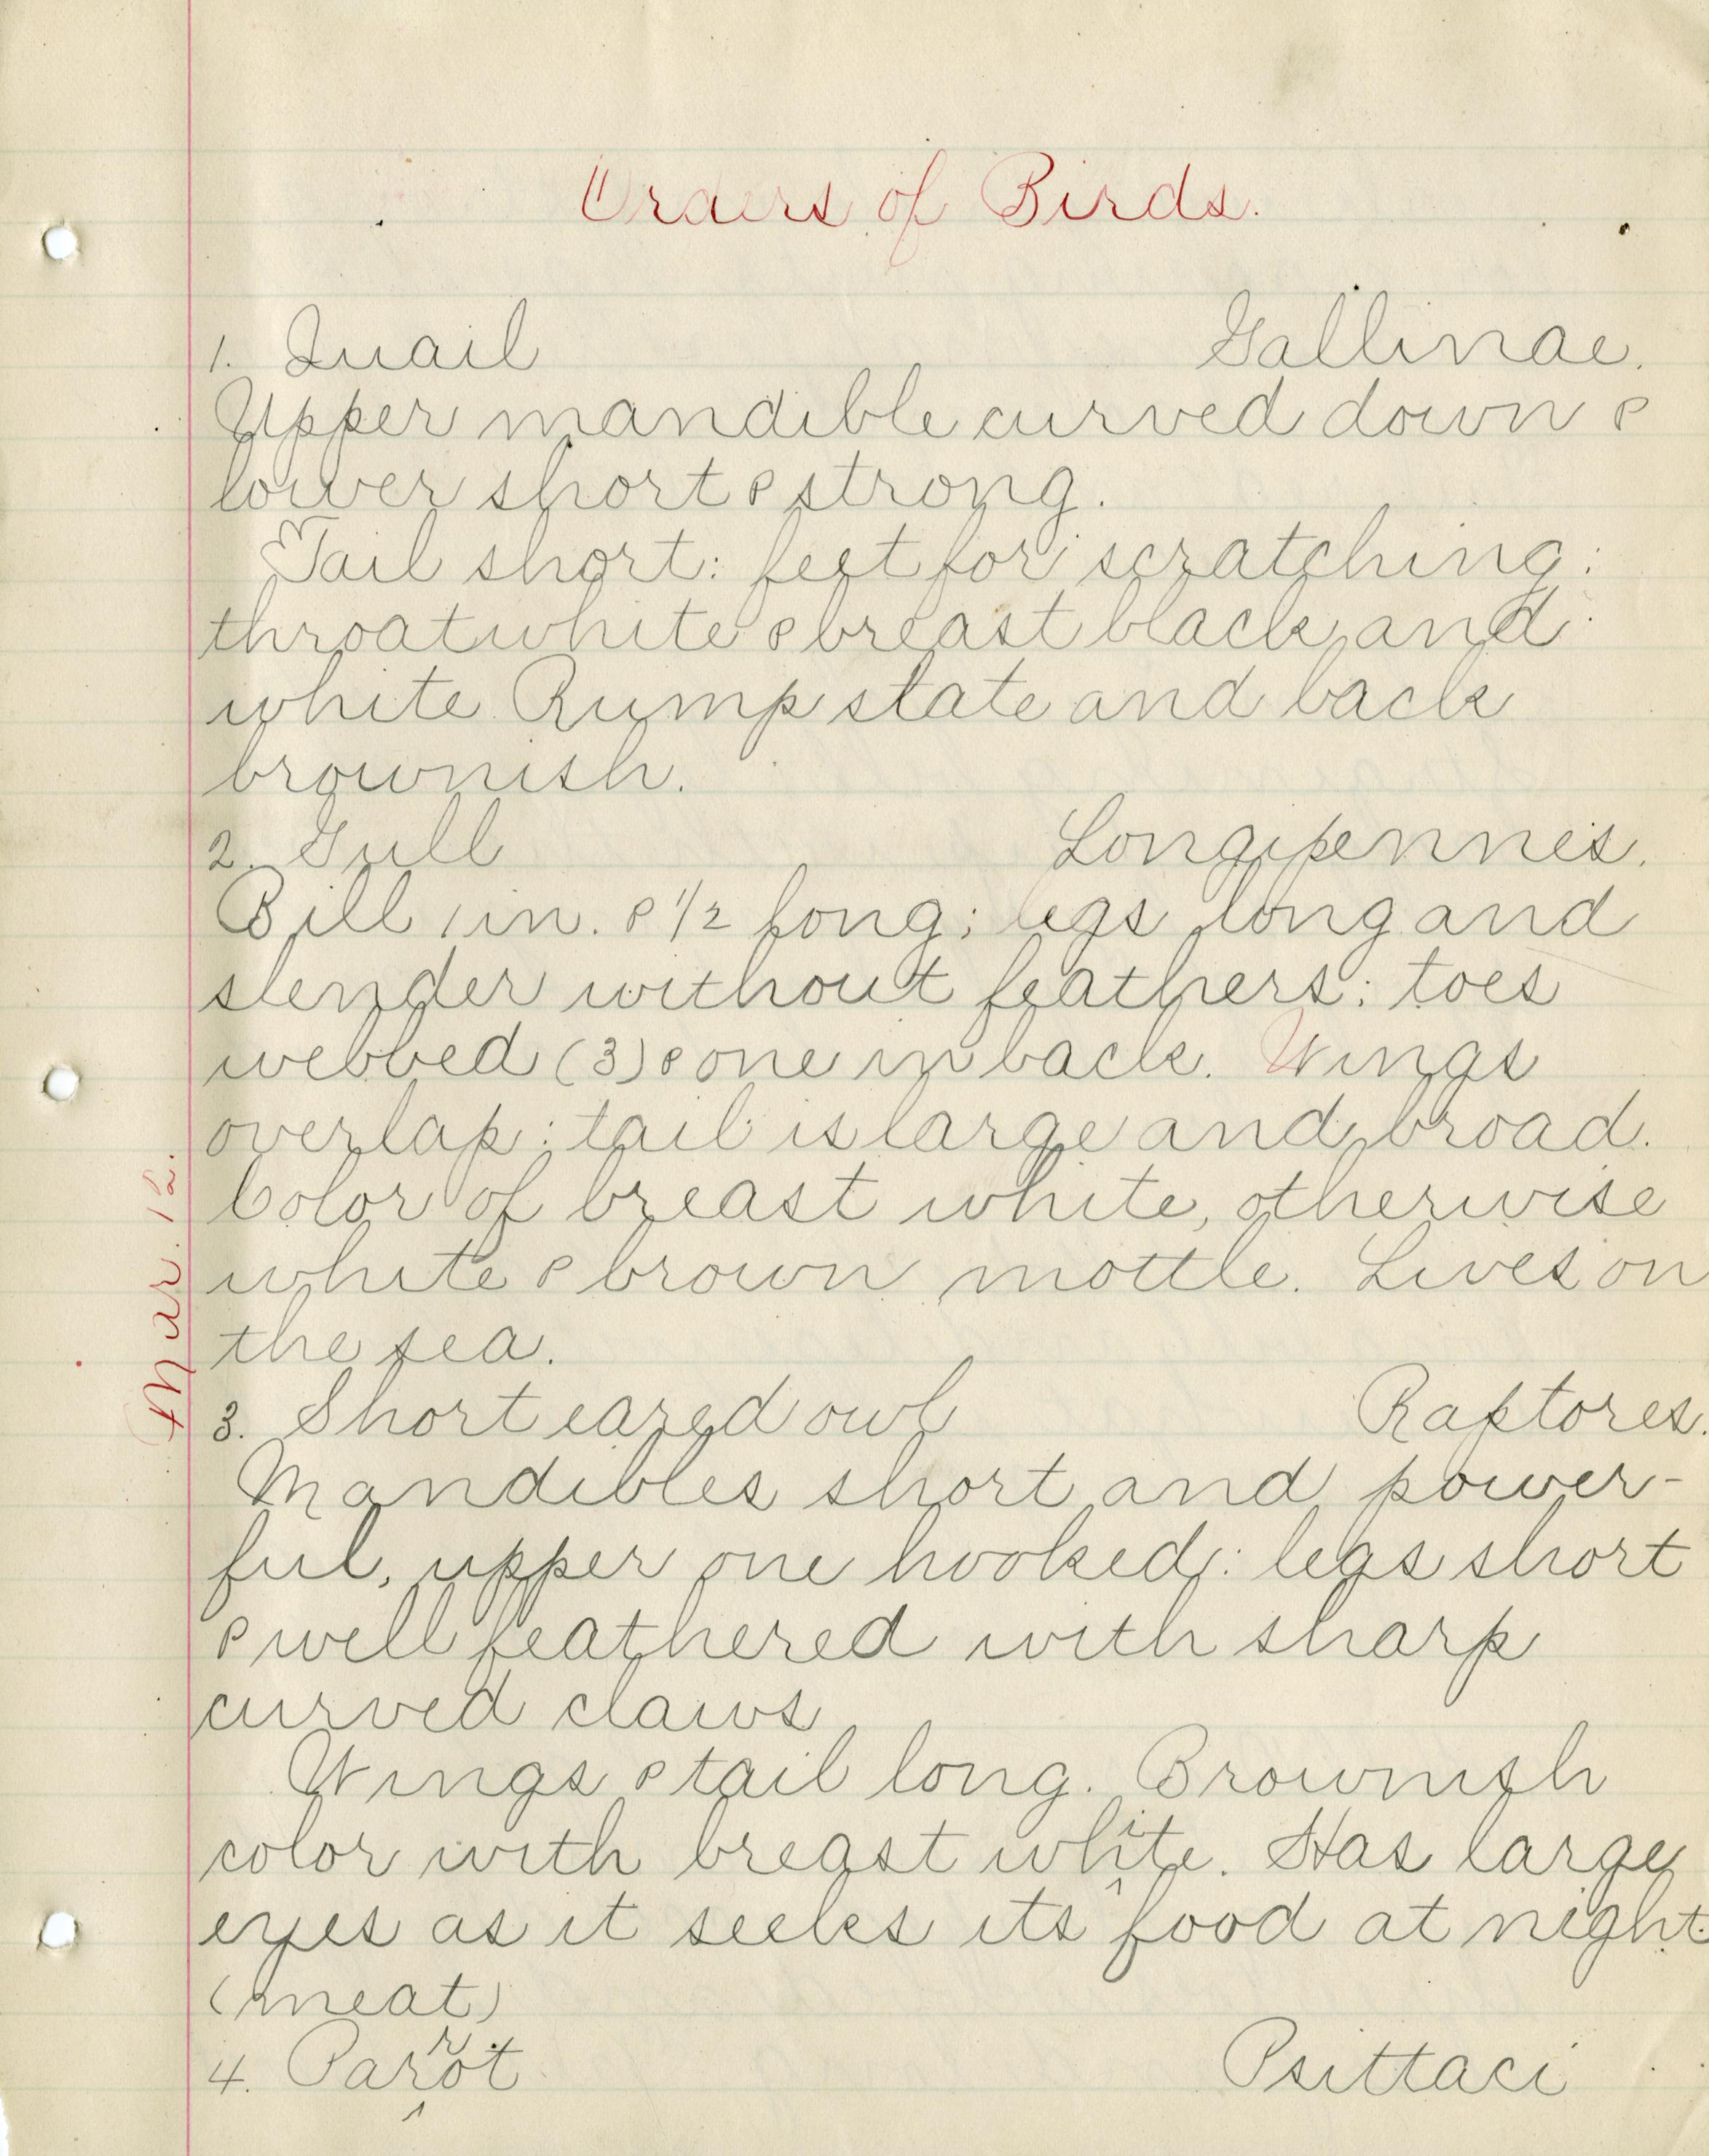 Orders of Birds.
1. Quail Gallinae.
Upper mandible curved down &
lower short & strong.
Tail short: feet for scratching:
throat white & breast black and
white Rump slate and back
brownish.
2. Gull Longipennes.
Bill 1 in. & 1/2 long; legs long and
slender without feathers: toes
webbed (3) & one in back. Wings
overlap: tail is large and broad.
Color of breast white, otherwise
white & brown mottle. Lives on
the sea.
Mar. 12.
3. Short eared owl Raptores.
Mandibles short and power-
ful, upper one hooked: legs short
& well feathered with sharp
curved claws
Wings & tail long. Brownish
color with breast white. Has large
eyes as it seeks its food at night.
(meat)
4. Parrot Psittaci